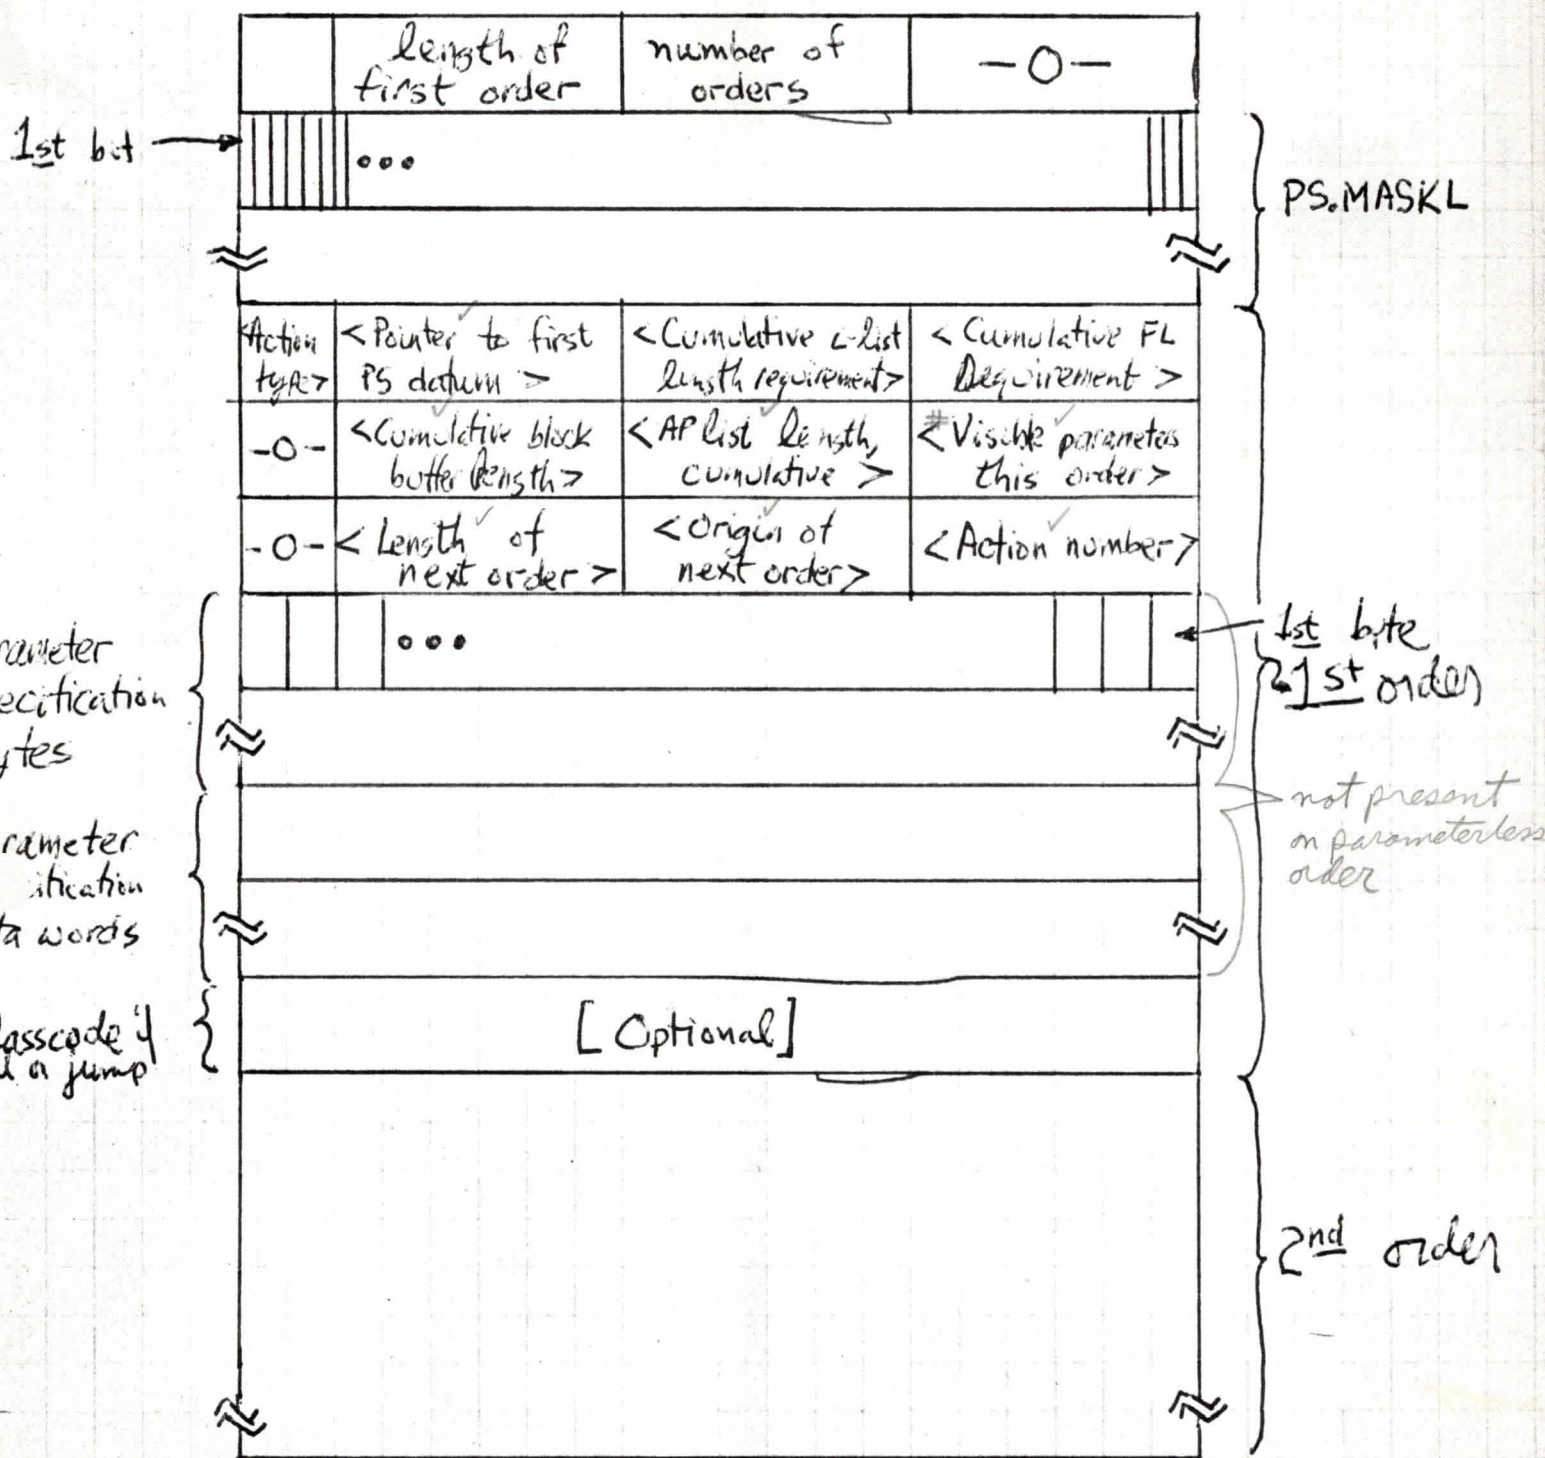 length of
first order
number of
orders
-0-
1st bit
•••
PS.MASKL
<Action
type>
<Pointer to first
PS datum>
<Cumulative c-list
length requirement>
<Cumulative FL
Requirement>
-0-
<Cumulative block
buffer length>
<AP list length,
cumulative>
#
<Visible parameters
this order>
-0-
<Length of
next order>
<Origin of
next order>
<Action number>
rameter
ecification
ytes
•••
1st byte
1st order
not present
on parameterless
order
rameter
ification
ta words
lasscode if
or jump
[Optional]
2nd order